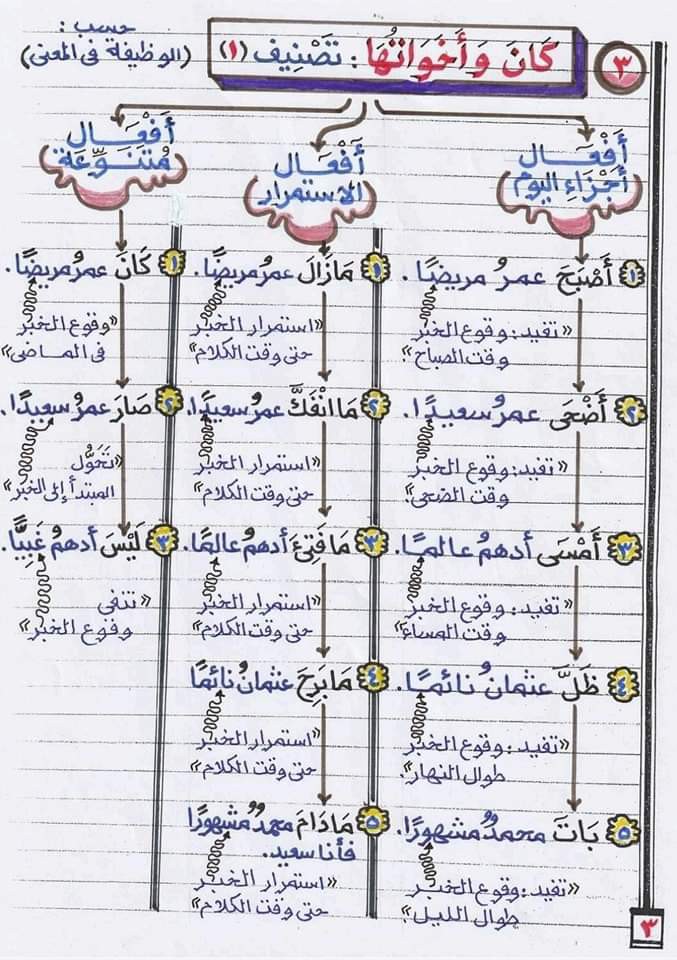 ٣
كَانَ وَأَخَوَاتُهَا : تَصْنِيف (١)
حسب :
(الوظيفة فى المعنى)
أَفْعَال
أَجْزَاءِ اليوم
١ أَصْبَحَ عمرُ مريضًا.
«تفيد: وقوع الخبر
وقت الصباح»
٢ أَضْحَى عمرُ سعيدًا.
«تفيد: وقوع الخبر
وقت الضحى»
٣ أَمْسَى أدهمُ عالمًا.
«تفيد: وقوع الخبر
وقت المساء»
٤ ظَلَّ عثمانُ نائمًا.
«تفيد: وقوع الخبر
طوال النهار»
٥ بَاتَ محمدٌ مشهورًا.
«تفيد: وقوع الخبر
طوال الليل»
أَفْعَال
الاستمرار
١ مَازَالَ عمرُ مريضًا.
«استمرار الخبر
حتى وقت الكلام»
٢ مَا انْفَكَّ عمرُ سعيدًا.
«استمرار الخبر
حتى وقت الكلام»
٣ مَا فَتِئَ أدهمُ عالمًا.
«استمرار الخبر
حتى وقت الكلام»
٤ مَا بَرِحَ عثمانُ نائمًا
«استمرار الخبر
حتى وقت الكلام»
٥ مَادَامَ محمدٌ مشهورًا
فأنا سعيد.
«استمرار الخبر
حتى وقت الكلام»
أَفْعَال
مُتَنَوِّعَة
١ كَانَ عمرُ مريضًا.
«وقوع الخبر
فى الماضى»
٢ صَارَ عمرُ سعيدًا.
«تَحَوُّل
المبتدأ إلى الخبر»
٣ لَيْسَ أدهمُ غَبِيًّا.
«تنفى
وقوع الخبر»
٣